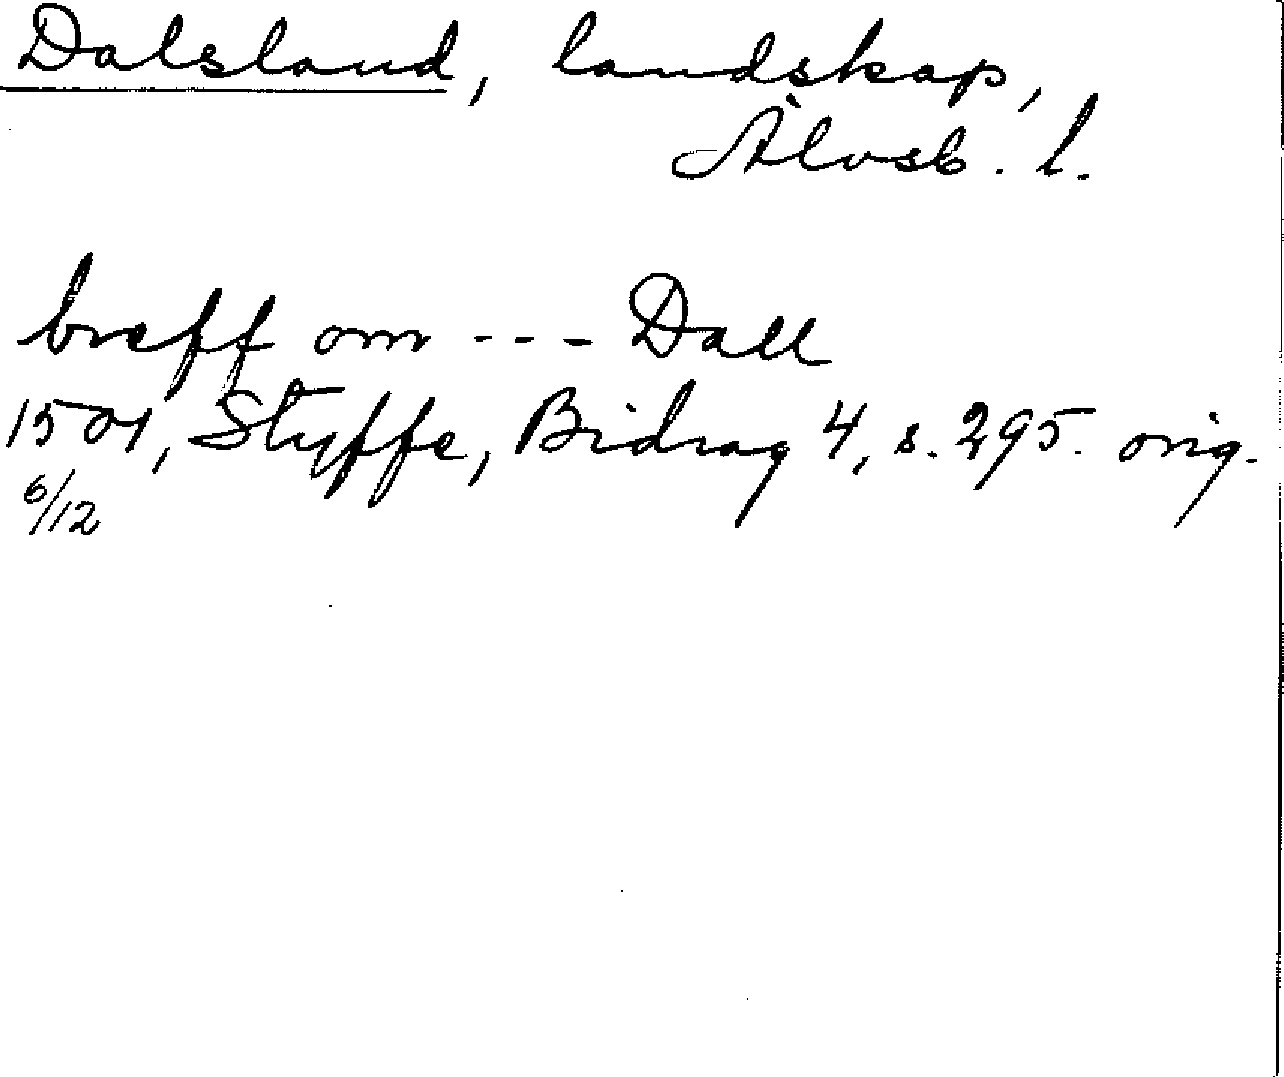 Dalsland, landskap,
Älvsb. l.
breff om --- Dall
1501, Styffe, Bidrag 4, s. 295. orig.
6/12